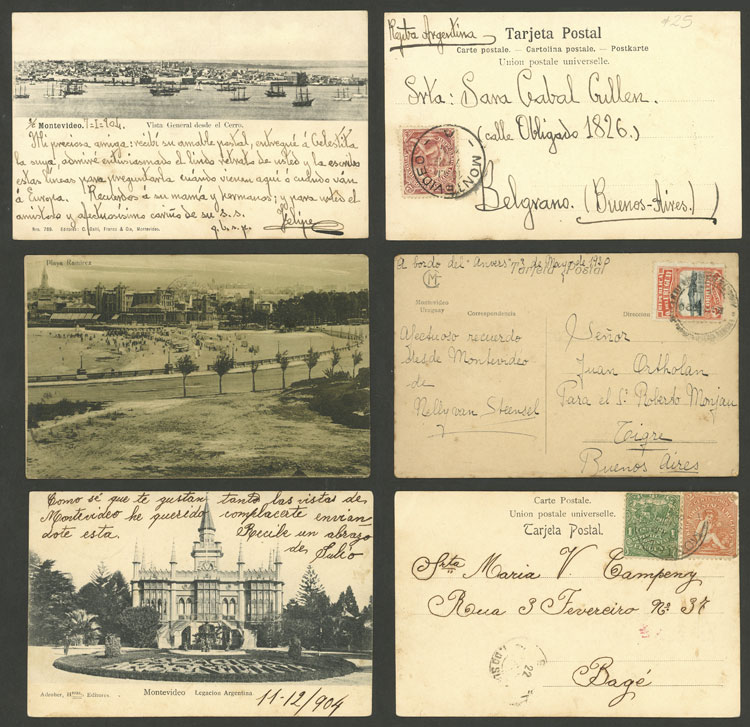 S/c Montevideo. 7-I-904.
Vista General desde el Cerro.
Mi preciosa amiga: recibí su amable postal, entregué á Celestita
la suya, admiré entusiasmado el lindo retrato de usted y la escribo
estas líneas para preguntarla cuándo vienen aquí ó cuándo ván
á Europa. Recuerdos á su mamá y hermanos; y para usted el
amistoso y afectuosísimo cariño de su s. s.
q. b. s. p. Felipe
Nro. 789. Editores: C. Galli, Franco & Cia, Montevideo.
#25
Repta Argentina
Tarjeta Postal
Carte postale. — Cartolina postale. — Postkarte
Union postale universelle.
Srta: Sara Cabal Cullen.
(calle Obligado 1826.)
Belgrano. (Buenos-Aires.)
MONTEVIDEO
Playa Ramirez
A bordo del "Anvers" 3 de Mayo de 1920
Tarjeta Postal
CM
Montevideo
Uruguay
Correspondencia
Dirección
Afectuoso recuerdo
desde Montevideo
de
Nelly van Steensel
Señor
Juan Ortholan
Para el Sr Roberto Monjau
Toigre
Buenos Aires
Como sé que te gustan tanto las vistas de
Montevideo he querido complacerte envian
dote esta. Recibe un abrazo
de, Julio
Adroher, Hnos, Editores.
Montevideo Legacion Argentina
11-12/904
Carte Postale.
Union postale universelle.
Tarjeta Postal.
Srta Maria V. Campeny
Rua 3 Fevereiro Nº 37
Bagé
22